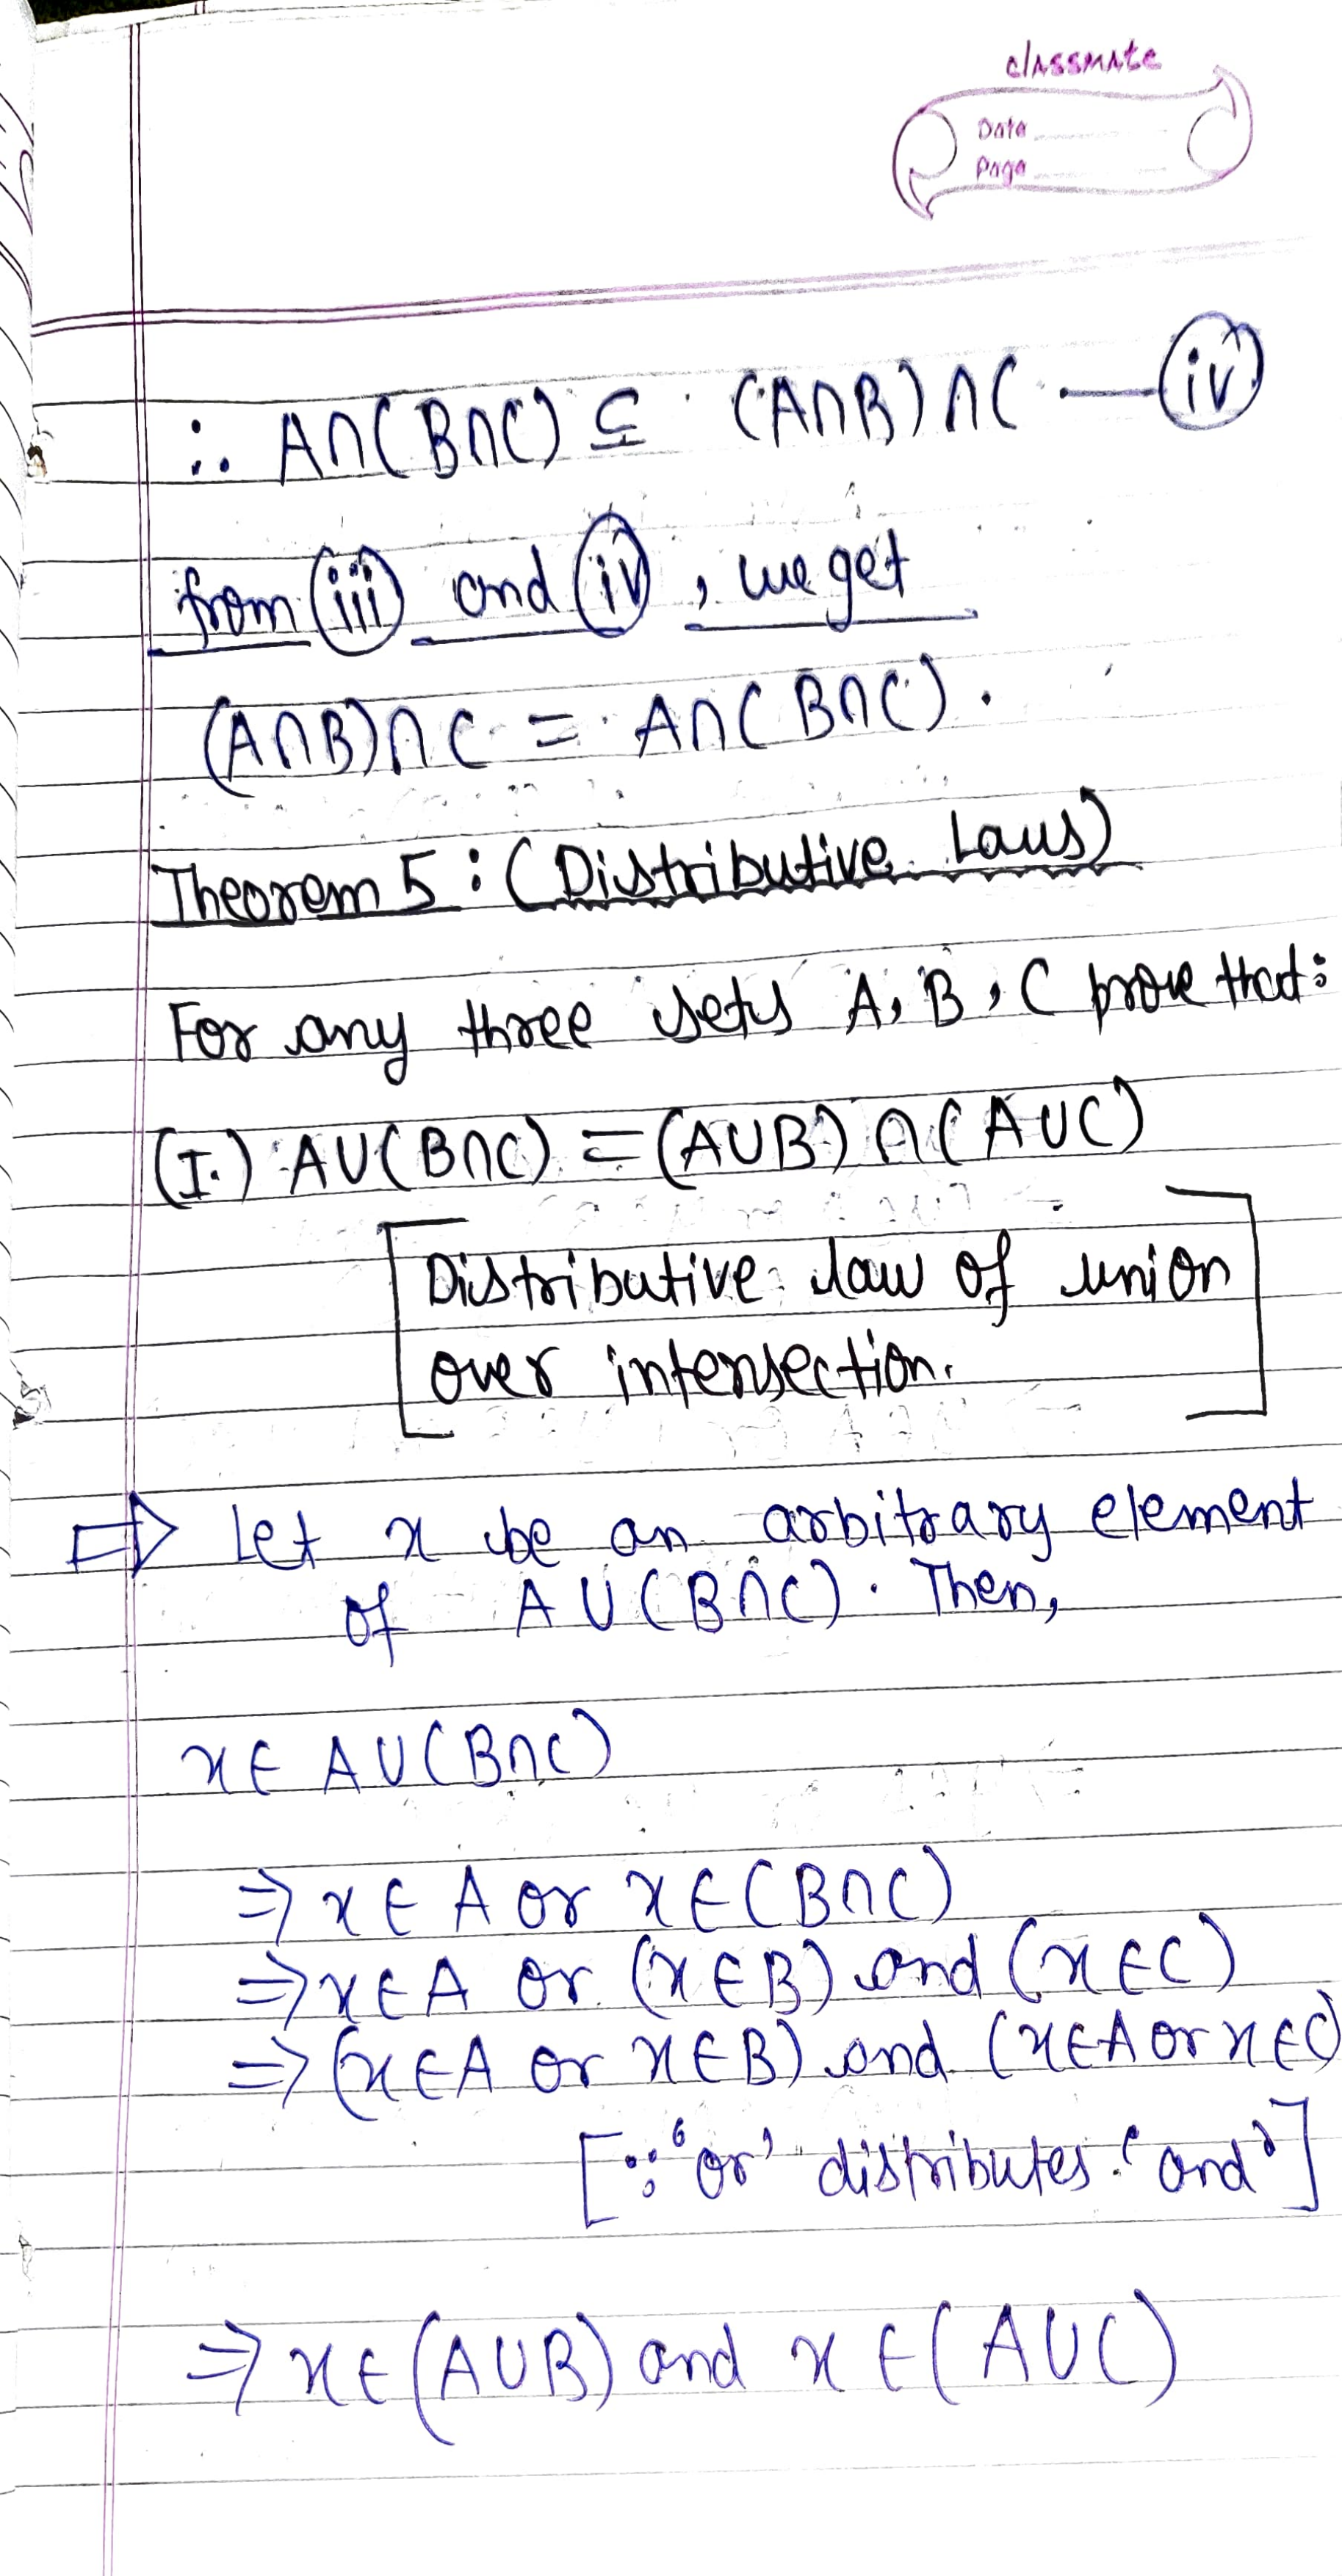 classmate
Date
Page
∴ A∩(B∩C) ⊆ (A∩B)∩C — (iv)
from (iii) and (iv), we get
(A∩B)∩C = A∩(B∩C).
Theorem 5 : (Distributive Laws)
For any three sets A, B, C prove that:
(I.) A∪(B∩C) = (A∪B)∩(A∪C)
[Distributive law of union
over intersection.]
⇒ Let x be an arbitrary element
of A∪(B∩C). Then,
x∈ A∪(B∩C)
⇒ x∈ A or x∈(B∩C)
⇒ x∈A or (x∈B) and (x∈C)
⇒ (x∈A or x∈B) and (x∈A or x∈C)
[∵ 'or' distributes 'and']
⇒ x∈(A∪B) and x∈(A∪C)